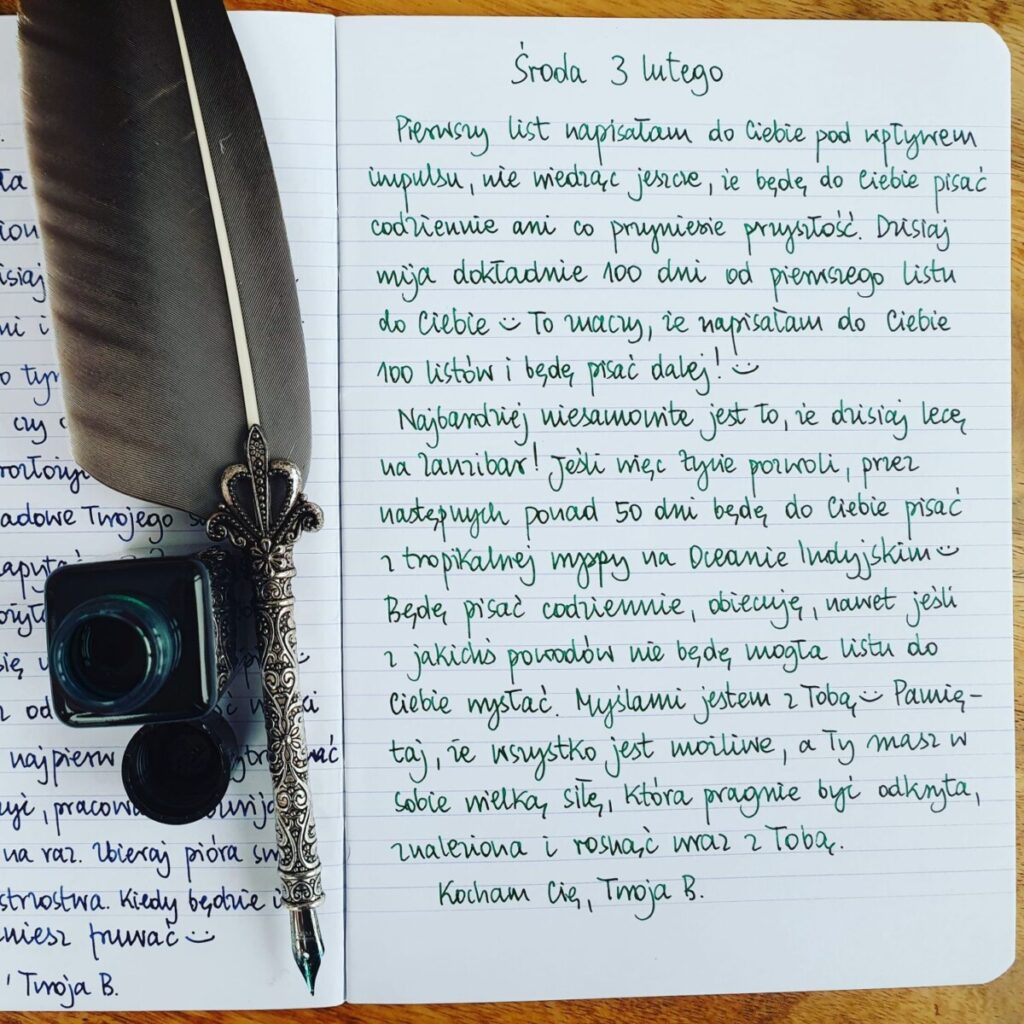 isiaj
czy
adowe Twojego
się
najpierw
na raz. Zbieraj pióra
strzostwa. Kiedy będzie
niesz fruwać
Twoja B.
Środa 3 lutego
Pierwszy list napisałam do Ciebie pod wpływem
impulsu, nie wiedząc jeszcze, że będę do Ciebie pisać
codziennie ani co przyniesie przyszłość. Dzisiaj
mija dokładnie 100 dni od pierwszego listu
do Ciebie To znaczy, że napisałam do Ciebie
100 listów i będę pisać dalej!
Najbardziej niesamowite jest to, że dzisiaj lecę
na Zanzibar! Jeśli więc życie pozwoli, przez
następnych ponad 50 dni będę do Ciebie pisać
z tropikalnej wyspy na Oceanie Indyjskim
Będę pisać codziennie, obiecuję, nawet jeśli
z jakichś powodów nie będę mogła listu do
Ciebie wysłać. Myślami jestem z Tobą Pamię-
taj, że wszystko jest możliwe, a Ty masz w
sobie wielką siłę, która pragnie być odkryta,
znaleziona i rosnąć wraz z Tobą.
Kocham Cię, Twoja B.